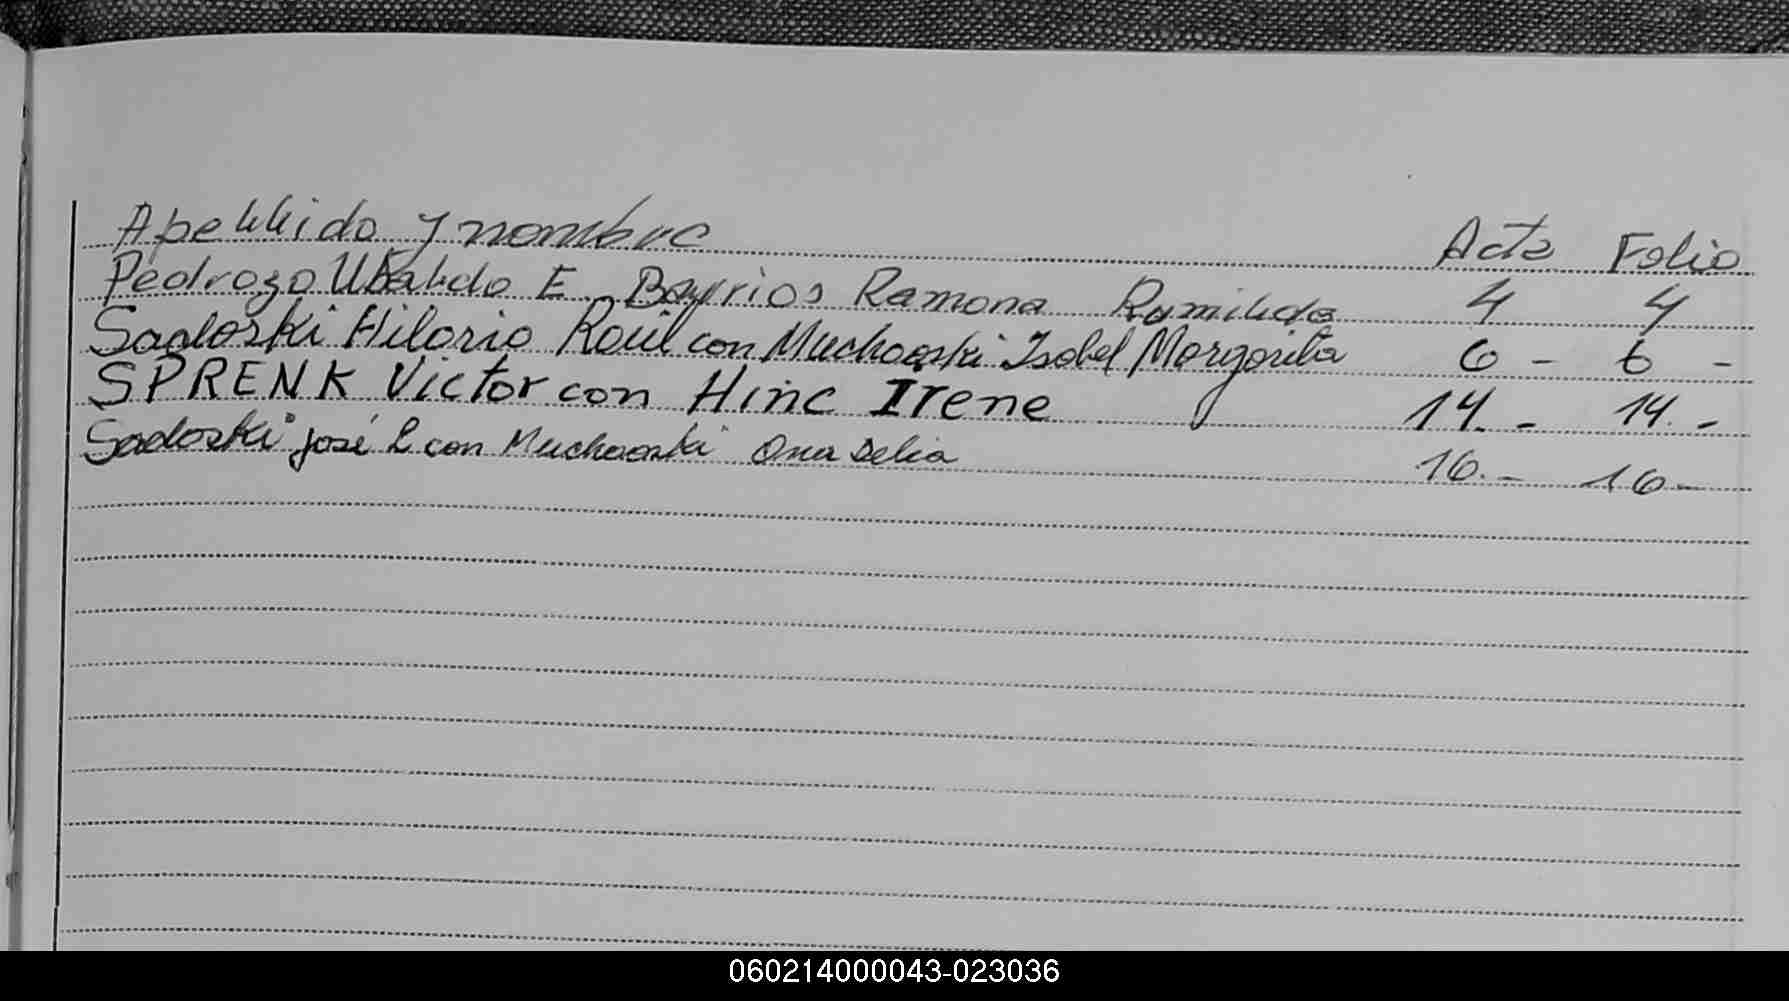 Apellido y nombre Acta Folio
Pedrozo Ubaldo E. Bayrrios Ramona Ramilda 4 4
Sadoski Hilario Raúl con Muchaoski Isabel Margarita 6 - 6 -
SPRENK Victor con Hinc Irene 14. - 14. -
Sadoski José L con Muchaoski Ana Delia 16. - 16 -
060214000043-023036